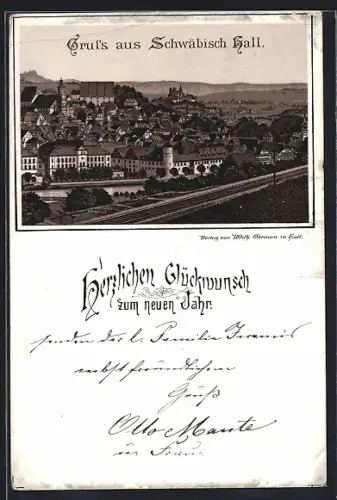 Gruß aus Schwäbisch Hall.
Verlag von Wilh. German in Hall.
Herzlichen Glückwunsch
zum neuen Jahr.
senden der l. Familie
nebst freundlichem
Gruß
Otto Mante
u. Frau.